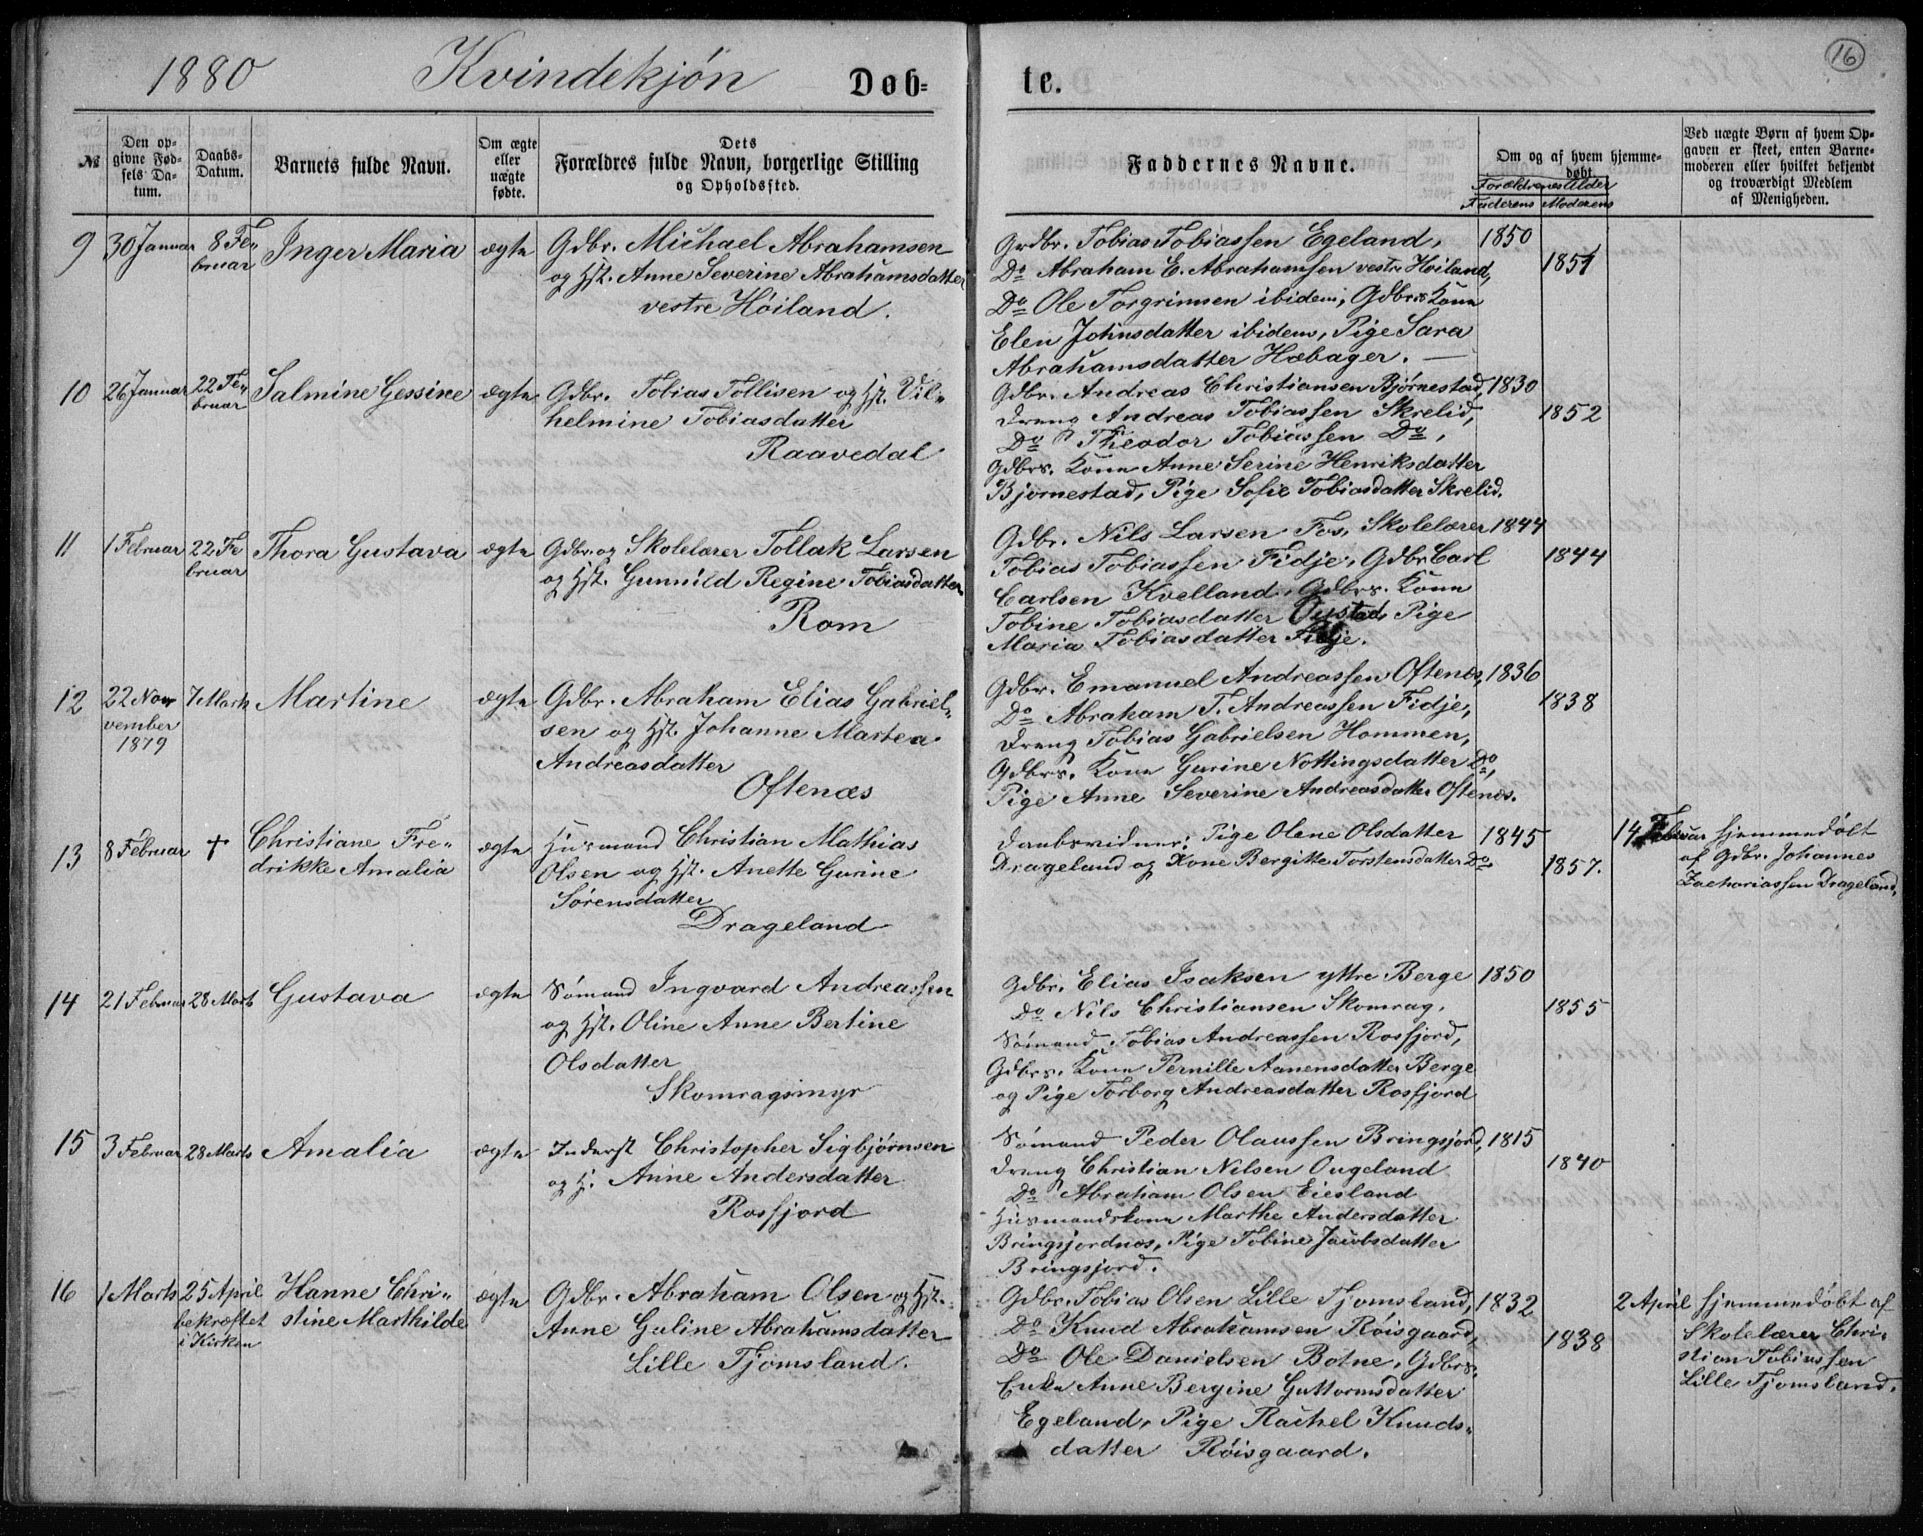 1880 Kvindekjøn Døb-
te.
16
№
Den op-
givne Fød-
sels Da-
tum.
Daabs-
Datum.
Barnets fulde Navn.
Om ægte
eller
uægte
fødte.
Dets
Forældres fulde Navn, borgerlige Stilling
og Opholdssted.
Faddernes Navne.
Om og af hvem hjemme-
døbt.
Forældrenes Alder
Faderens Moderens
Ved uægte Børn af hvem Op-
gaven er skeet, enten Barne-
moderen eller hvilket bekjendt
og troværdigt Medlem
af Menigheden.
9 30 Januar 8 Fe-
bruar
Inger Maria
ægte
Gdbr. Michael Abrahamsen
og Hst. Anne Severine Abrahamsdatter
vestre Høiland.
Grdbr. Tobias Tobiassen Egeland,
Do Abraham E. Abrahamsen vestre Høiland,
Do Ole Torgrimsen ibidem, Gdbrs Kone
Elen Johnsdatter ibidem, Pige Sara
Abrahamsdatter Hæbager. —
1850
1851
10 26 Januar 22 Fe-
bruar
Salmine Gessine
ægte
Gdbr. Tobias Tollisen og Hst. Vil-
helmine Tobiasdatter
Raavedal
Gdbr. Andreas Christiansen Bjørnestad,
Dreng Andreas Tobiassen Skrelid,
Do Theodor Tobiassen Do,
Gdbrs. Kone Anne Serine Henriksdatter
Bjørnestad, Pige Sofie Tobiasdatter Skrelid.
1830
1852
11 1 Februar 22 Fe
bruar
Thora Gustava
ægte
Gdbr. og Skolelærer Tollak Larsen
og Hst. Gunnild Regine Tobiasdatter
Rom
Gdbr. Nils Larsen Fos, Skolelærer
Tobias Tobiassen Fidje, Gdbr Carl
Carlsen Kvelland, Gdbrs. Kone
Tobine Tobiasdatter Pige
Maria Tobiasdatter Fidje.
1844
1844
12 22 No-
vember
1879
7 Marts
Martine
ægte
Gdbr. Abraham Elias Gabriel-
sen og Hst. Johanne Martea
Andreasdatter
Oftenæs
Gdbr. Emanuel Andreassen Oftenæs,
Do Abraham T. Andreassen Fidje,
Dreng Tobias Gabrielsen Hommen,
Gdbrs. Kone Gurine Nottingsdatter Do,
Pige Anne Severine Andreasdatter Oftenæs.
1836
1838
13 8 Februar †
Christiane Fre-
drikke Amalia
ægte
Husmand Christian Mathias
Olsen og Hst. Anette Gurine
Sørensdatter
Drageland
Daabsvidner: Pige Olene Olsdatter
Drageland og Kone Bergitte Torstensdatter Do
1845
1857.
14 Februar hjemmedøbt
af Gdbr. Johannes
Zachariassen Drageland,
14 21 Februar 28 Marts
Gustava
ægte
Sømand Ingvard Andreassen
og Hst. Oline Anne Bertine
Olsdatter
Skomragsmyr
Gdbr. Elias Isaksen yttre Berge
Do Nils Christiansen Skomrag,
Sømand Tobias Andreassen Rosfjord,
Gdbrs. Kone Pernille Aanensdatter Berge
og Pige Torborg Andreasdatter Rosfjord
1850
1855
15 3 Februar 28 Marts
Amalia
ægte
Inderst Christopher Sigbjørnsen
og H. Anne Andersdatter
Rosfjord
Sømand Peder Olaussen Bringsjord,
Dreng Christian Nilsen Ougeland
Do Abraham Olsen Eiesland
Husmandskone Marthe Andersdatter
Bringsjordnæs, Pige Tobine Jacobsdatter
Bringsjord.
1815
1840
16 1 Marts 25 April
bekræftet
i Kirken
Hanne Chri-
stine Marthilde
ægte
Gdbr. Abraham Olsen og Hst.
Anne Guline Abrahamsdatter
Lille Tjomsland.
Gdbr. Tobias Olsen Lille Tjomsland,
Do Knud Abrahamsen Røisgaard,
Do Ole Danielsen Botne, Gdbrs.
Enke Anne Bergine Guttormsdatter
Egeland, Pige Rachel Knuds-
datter Røisgaard.
1832
1838
2 April hjemmedøbt af
Skolelærer Chri-
stian Tobiassen
Lille Tjomsland.